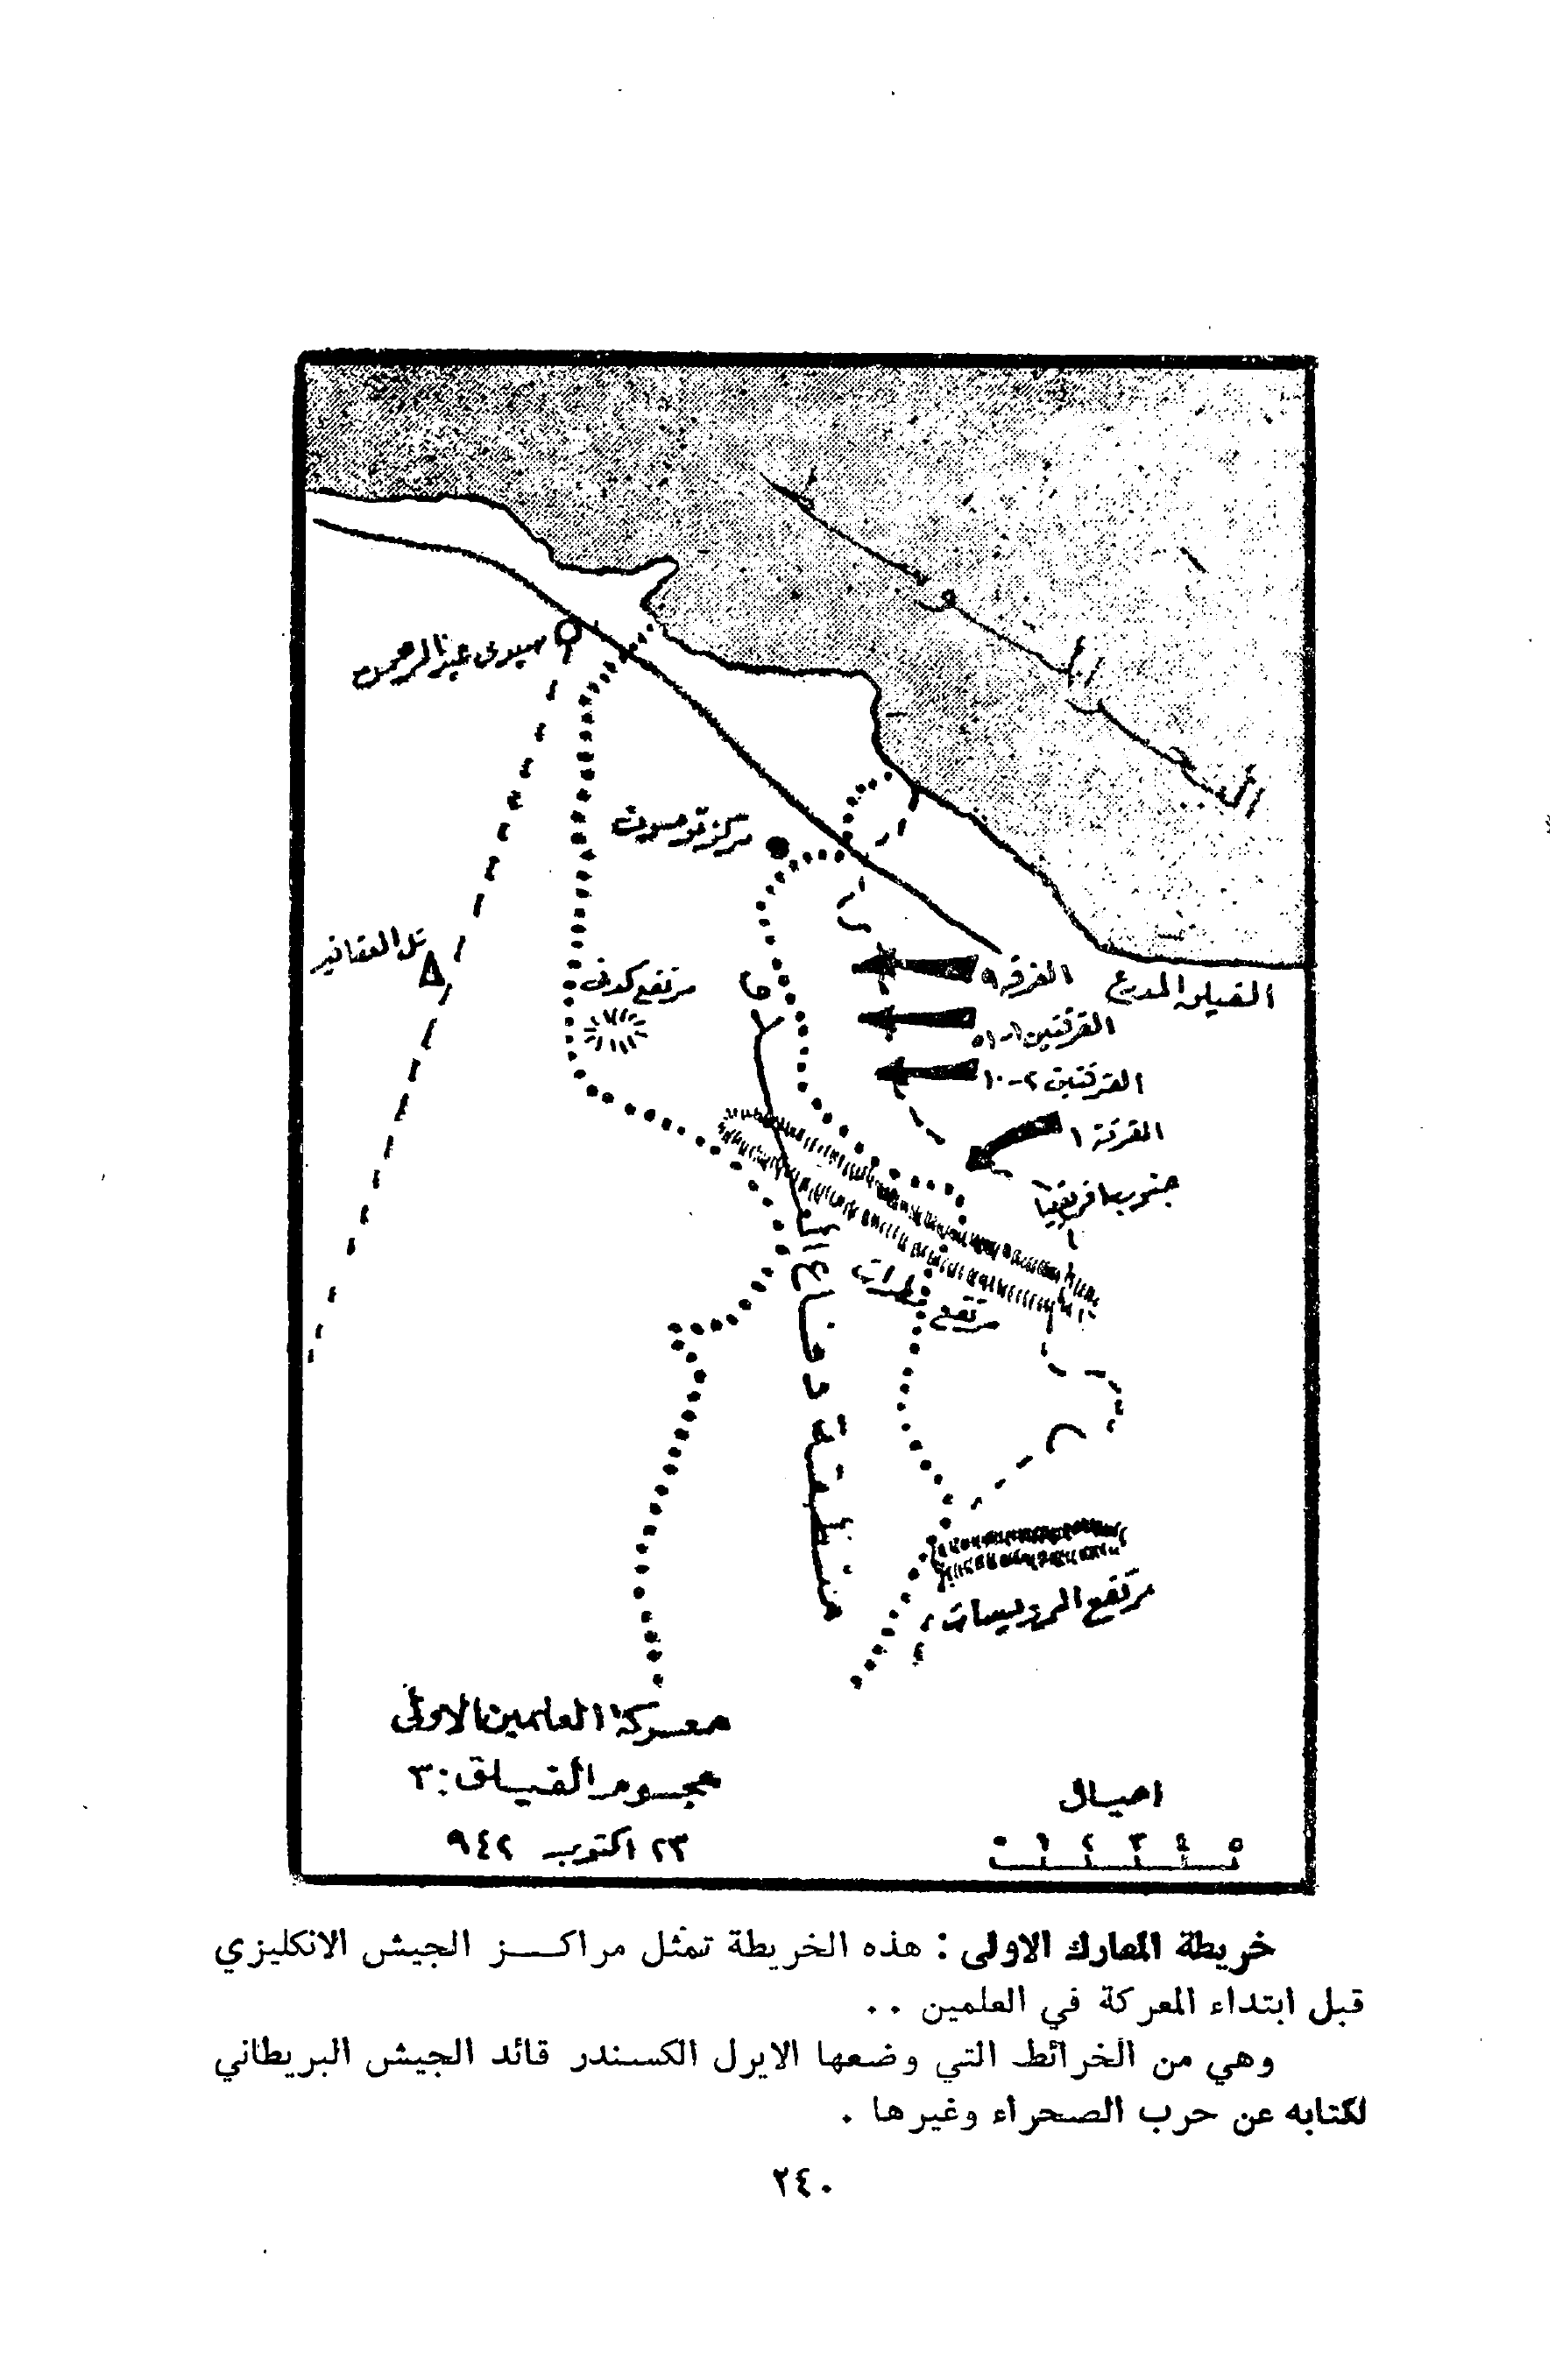 البحر الأبيض
سيدى عبدالرحمن
مركز تومسون
تل العقاقير
مرتفع كدنى
الفيلق المدرع
الفرقه ٩
الفرقتين ١-٥١
الفرقتين ٢-١٠
الفرقة ١
جنوب افريقيا
منطقة دفاع
مرتفع مطرات
مرتفع الرويسات
معركة العلمين الاولى
هجوم الفيلق: ٣
٢٣ اكتوبر ٩٤٢
اميال
٠ ١ ٢ ٣ ٤ ٥
خريطة المعارك الاولى : هذه الخريطة تمثل مراكــز الجيش الانكليزي
قبل ابتداء المعركة في العلمين ..
وهي من الخرائط التي وضعها الايرل الكسندر قائد الجيش البريطاني
لكتابه عن حرب الصحراء وغيرها .
٢٤٠